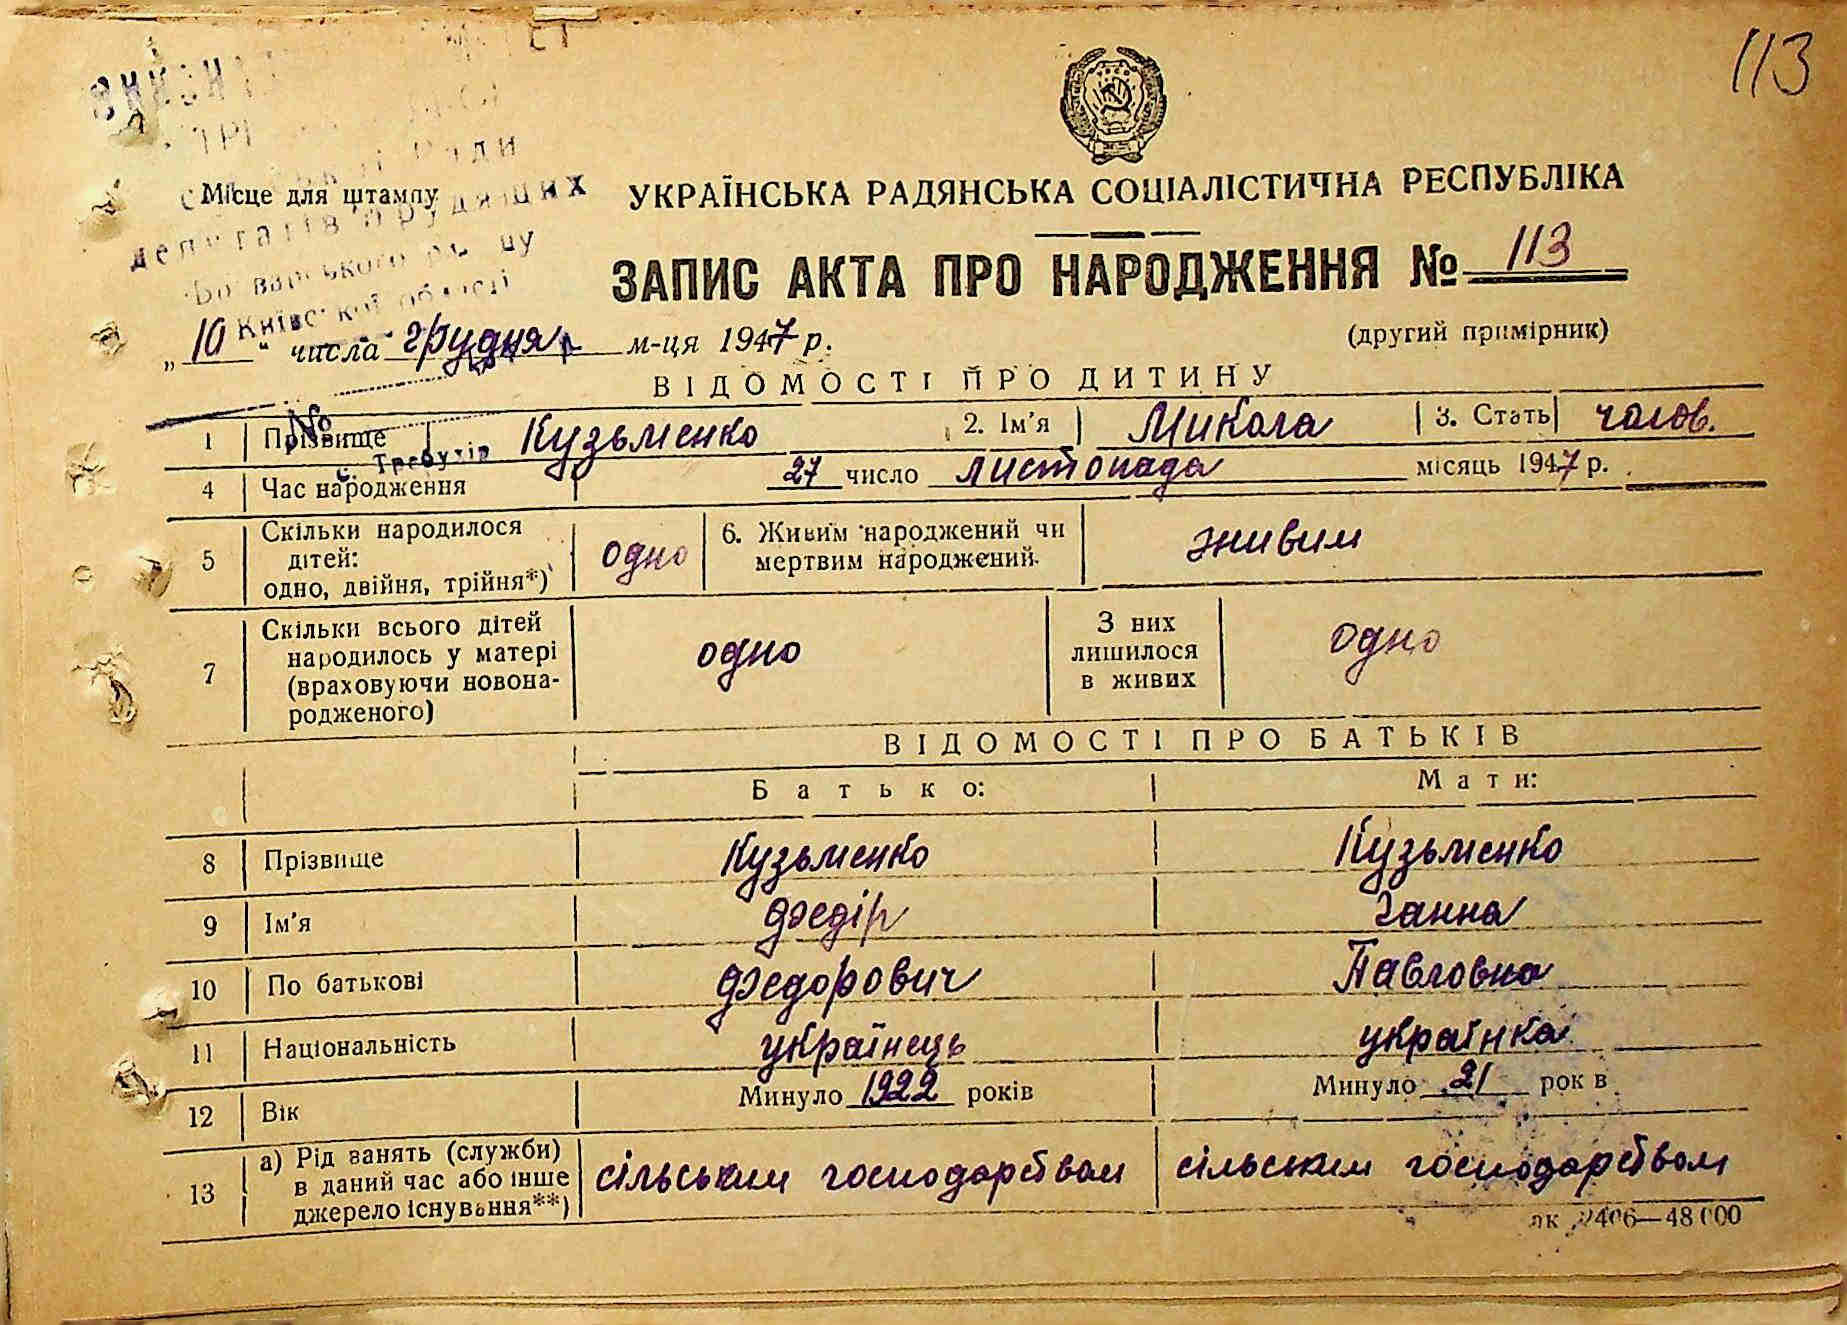 113
Ради
Місце для штампу
депутатів трудящих
Київської області
УКРАЇНСЬКА РАДЯНСЬКА СОЦІАЛІСТИЧНА РЕСПУБЛІКА
ЗАПИС АКТА ПРО НАРОДЖЕННЯ № 113
„ 10 “ числа грудня м-ця 1947 р.
(другий примірник)
ВІДОМОСТІ ПРО ДИТИНУ
№
с. Требухів
1 Прізвище Кузьменко 2. Ім'я Микола 3. Стать чолов.
4 Час народження 27 число листопада місяць 1947 р.
5 Скільки народилося дітей: одно, двійня, трійня*) одно 6. Живим народжений чи мертвим народжений. живим
7 Скільки всього дітей народилось у матері (враховуючи новонародженого) одно З них лишилося в живих одно
ВІДОМОСТІ ПРО БАТЬКІВ
Батько: Мати:
8 Прізвище Кузьменко Кузьменко
9 Ім'я Федір Ганна
10 По батькові Федорович Павловна
11 Національність українець українка
12 Вік Минуло 1922 років Минуло 21 рок в
13 а) Рід занять (служби) в даний час або інше джерело існування**) сільським господарством сільським господарством
48000